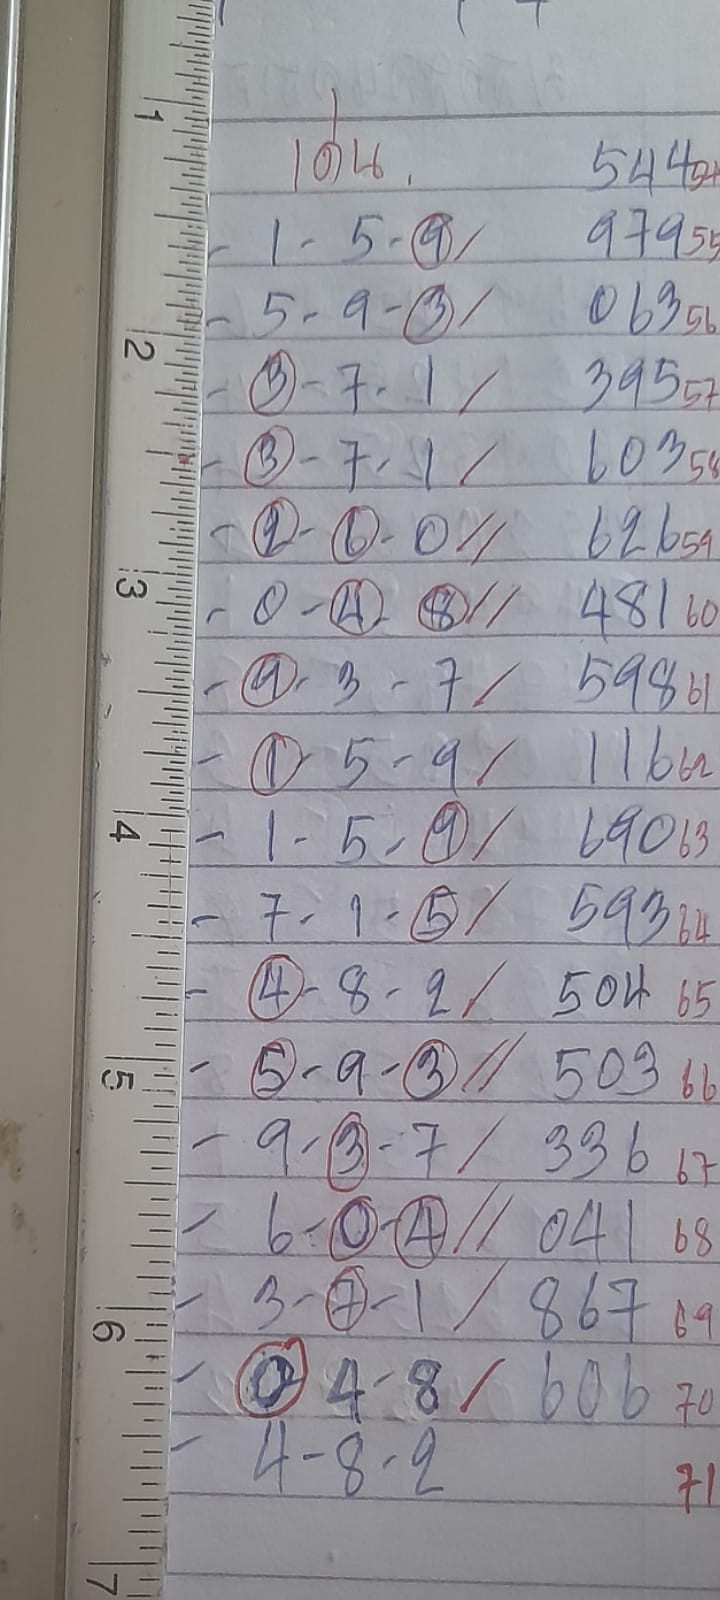 เด่น. 544 54
- 1 - 5 - 9 / 979 55
- 5 - 9 - 3 / 063 56
- 3 - 7 - 1 / 395 57
- 3 - 7 - 1 / 603 58
- 2 - 6 - 0 // 626 59
- 0 - 4 - 8 // 481 60
- 9 - 3 - 7 / 598 61
- 1 - 5 - 9 / 116 62
- 1 - 5 - 9 / 690 63
- 7 - 1 - 5 / 593 64
- 4 - 8 - 2 / 504 65
- 5 - 9 - 3 // 503 66
- 9 - 3 - 7 / 336 67
- 6 - 0 - 4 // 041 68
- 3 - 7 - 1 / 867 69
- 0 - 4 - 8 / 606 70
- 4 - 8 - 2 71
1
2
3
4
5
6
7